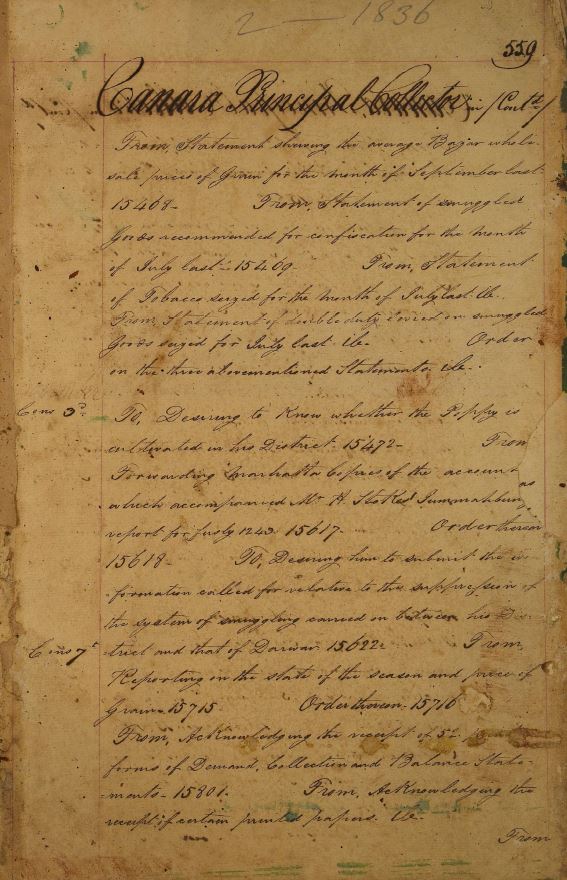 2 — 1836
559
Canara Principal Collector in /Contd/
From Statement shewing the average Bazar whole-
sale prices of Grain for the month of September last
15468- From, Statement of smuggled
Goods recommended for confiscation for the month
of July last - 15469- From, Statement
of Tobacco seized for the month of July last. Ue.
From Statement of double duty levied on smuggled
Goods seized for July last Ue- Order
on the three abovementioned Statements Ue.
Cons 3d. To, Desiring to Know whether the Poppy is
cultivated in his District 15472- From
Forwarding Marhatta Copies of the account as
which accompanied Mr. H. Stokes Jummabun
report for fusly 1243 15617- Order thereon
15618- To, Desiring him to submit the in-
formation called for relative to the suppression of
the system of smuggling carried on between his Dis-
Cons 7th trict and that of Darwar 15622- From,
Reporting on the state of the season and prices of
Grain - 15715 Order thereon - 15716
From, Acknowledging the receipt of 52
forms of Demand, Collection and Balance State-
ments - 15801. From, Acknowledging the
receipt of certain printed papers. Ue-
From